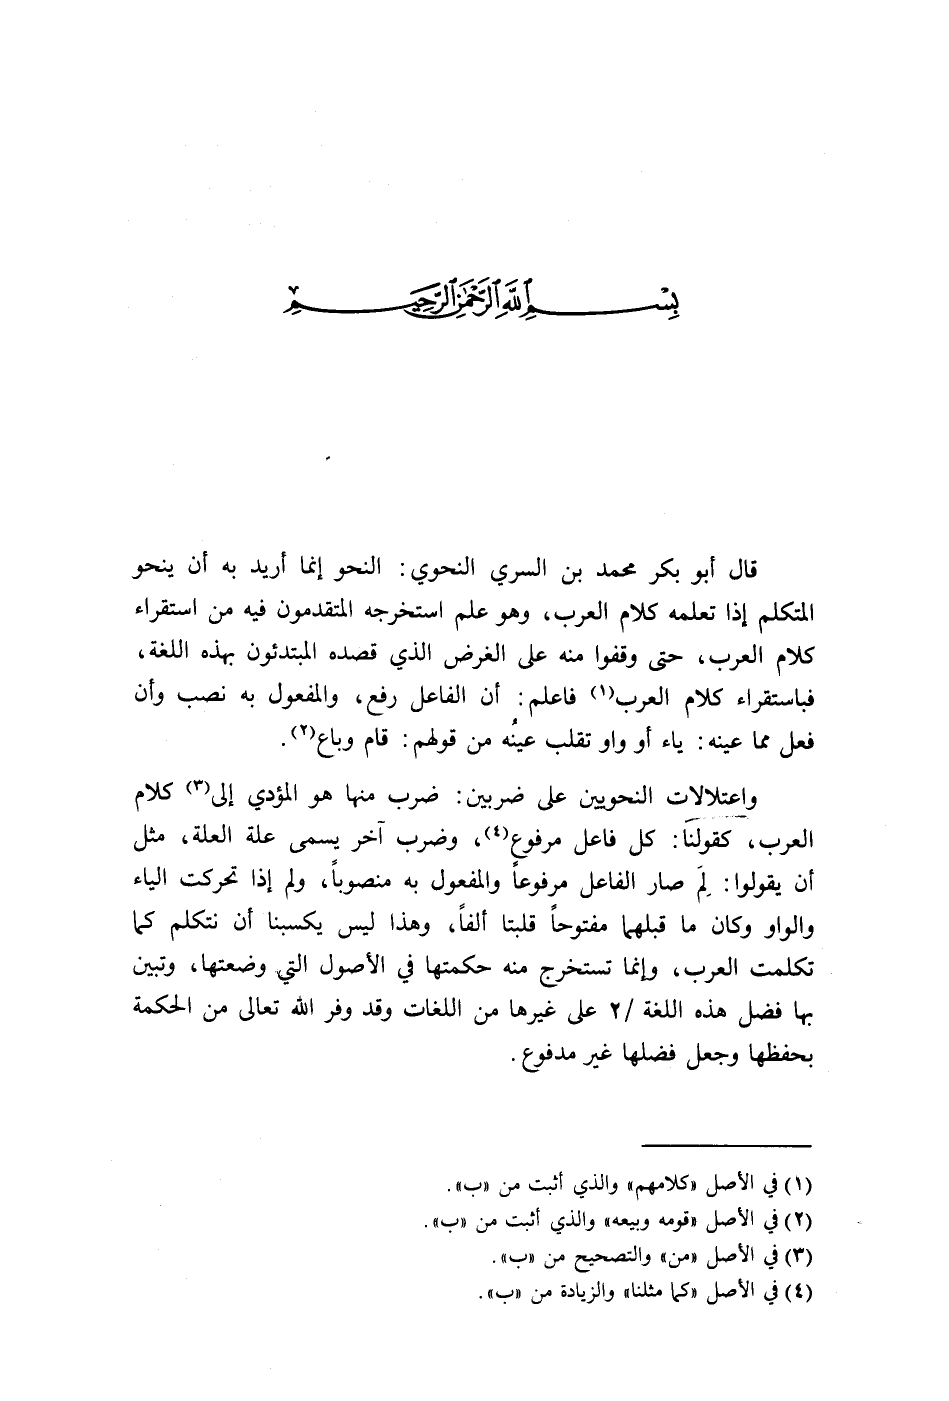 بِسْمِ ٱللَّهِ ٱلرَّحْمَٰنِ ٱلرَّحِيمِ
قال أبو بكر محمد بن السري النحوي: النحو إنما أريد به أن ينحو
المتكلم إذا تعلمه كلام العرب، وهو علم استخرجه المتقدمون فيه من استقراء
كلام العرب، حتى وقفوا منه على الغرض الذي قصده المبتدئون بهذه اللغة،
فباستقراء كلام العرب(١) فاعلم: أن الفاعل رفع، والمفعول به نصب وأن
فعل مما عينه: ياء أو واو تقلب عينُه من قولهم: قام وباع(٢).
واعتلالات النحويين على ضربين: ضرب منها هو المؤدي إلى(٣) كلام
العرب، كقولنا: كل فاعل مرفوع(٤)، وضرب آخر يسمى علة العلة، مثل
أن يقولوا: لِمَ صار الفاعل مرفوعاً والمفعول به منصوباً، ولم إذا تحركت الياء
والواو وكان ما قبلهما مفتوحاً قلبتا ألفاً، وهذا ليس يكسبنا أن نتكلم كما
تكلمت العرب، وإنما تستخرج منه حكمتها في الأصول التي وضعتها، وتبين
بها فضل هذه اللغة /٢ على غيرها من اللغات وقد وفر الله تعالى من الحكمة
بحفظها وجعل فضلها غير مدفوع.
(١) في الأصل «كلامهم» والذي أثبت من «ب».
(٢) في الأصل «قومه وبيعه» والذي أثبت من «ب».
(٣) في الأصل «من» والتصحيح من «ب».
(٤) في الأصل «كما مثلنا» والزيادة من «ب».